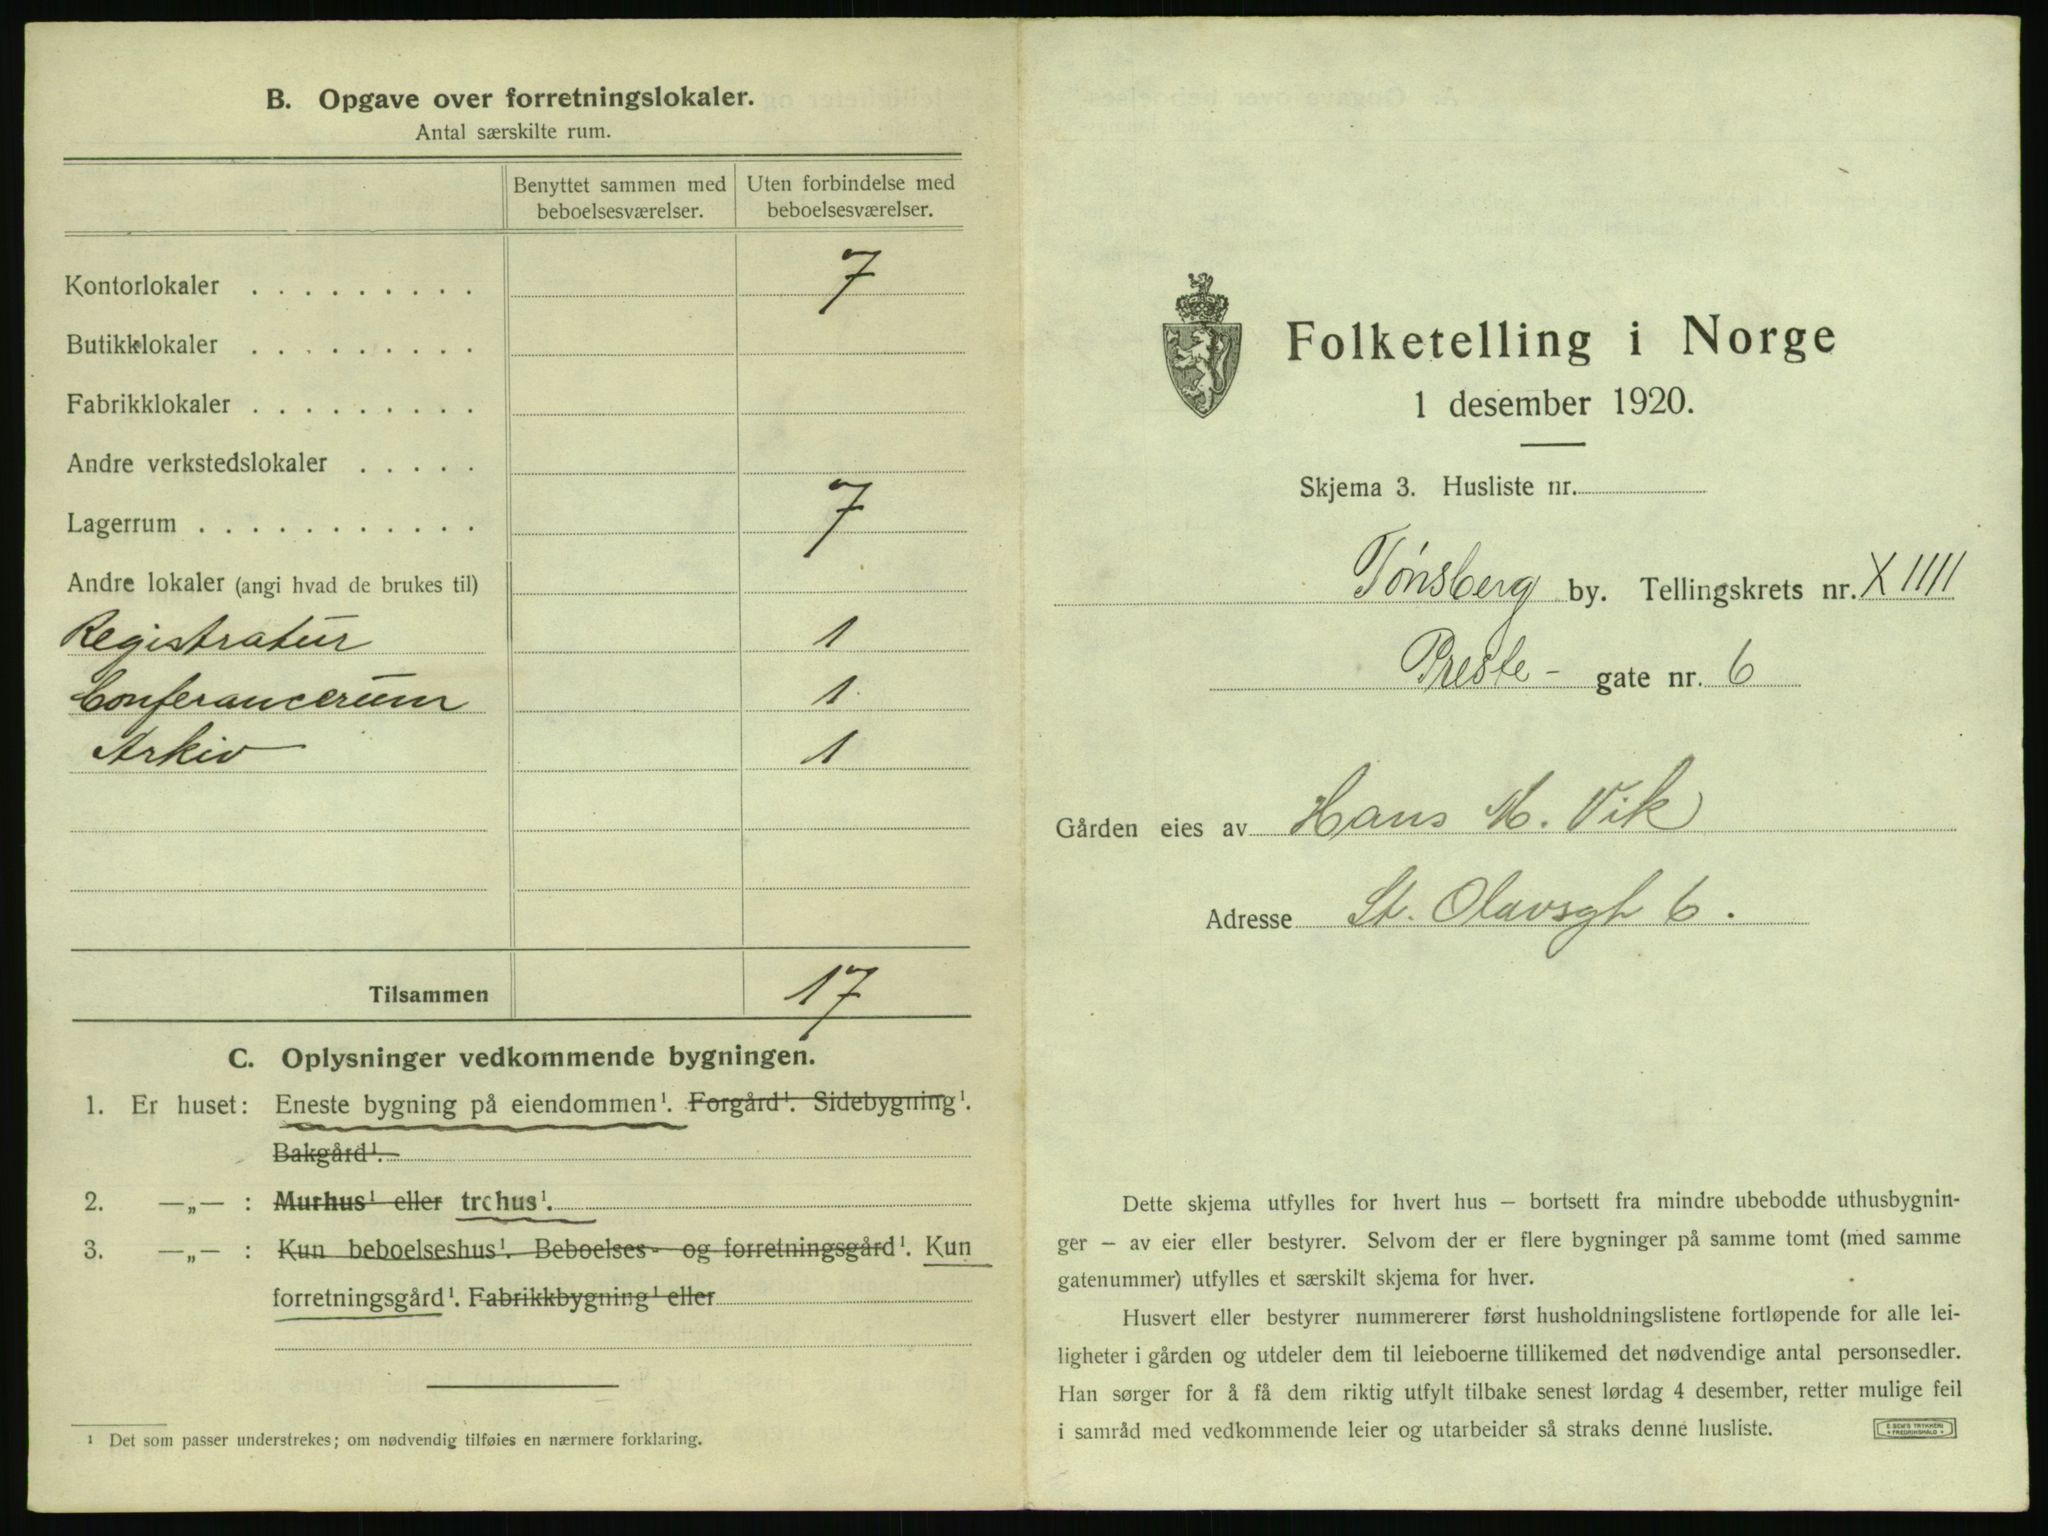 B. Opgave over forretningslokaler.
Antal særskilte rum.
Benyttet sammen med beboelsesværelser.
Uten forbindelse med beboelsesværelser.
Kontorlokaler . . . . . . . . . 7
Butikklokaler . . . . . . . . .
Fabrikklokaler . . . . . . . . .
Andre verkstedslokaler . . . . .
Lagerrum . . . . . . . . . . . 7
Andre lokaler (angi hvad de brukes til)
Registratur 1
Conferancerum 1
Arkiv 1
Tilsammen 17
C. Oplysninger vedkommende bygningen.
1. Er huset: Eneste bygning på eiendommen¹. Forgård¹. Sidebygning¹.
Bakgård¹.
2. —„— : Murhus¹ eller trehus¹.
3. —„— : Kun beboelseshus¹. Beboelses- og forretningsgård¹. Kun
forretningsgård¹. Fabrikkbygning¹ eller
¹ Det som passer understrekes; om nødvendig tilføies en nærmere forklaring.
Folketelling i Norge
1 desember 1920.
Skjema 3. Husliste nr.
Tønsberg by. Tellingskrets nr. X IIII
Preste- gate nr. 6
Gården eies av Hans M. Vik
Adresse St. Olavsgt 6.
Dette skjema utfylles for hvert hus – bortsett fra mindre ubebodde uthusbygnin-
ger – av eier eller bestyrer. Selvom der er flere bygninger på samme tomt (med samme
gatenummer) utfylles et særskilt skjema for hver.
Husvert eller bestyrer nummererer først husholdningslistene fortløpende for alle lei-
ligheter i gården og utdeler dem til leieboerne tillikemed det nødvendige antal personsedler.
Han sørger for å få dem riktig utfylt tilbake senest lørdag 4 desember, retter mulige feil
i samråd med vedkommende leier og utarbeider så straks denne husliste.
E. SEM'S TRYKKERI
• FREDRIKSHALD •